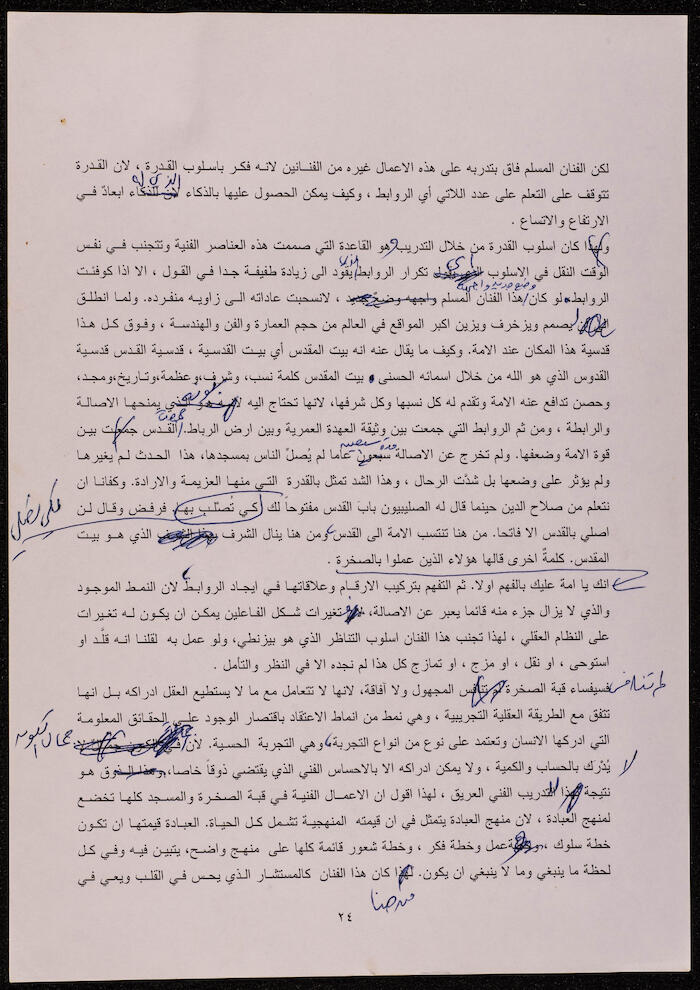 لكن الفنان المسلم فاق بتدربه على هذه الاعمال غيره من الفنانين لانه فكر باسلوب القدرة ، لان القدرة
تتوقف على التعلم على عدد اللاتي أي الروابط ، وكيف يمكن الحصول عليها بالذكاء للذكاء ابعادٌ في
الارتفاع والاتساع .
ولهذا كان اسلوب القدرة من خلال التدريب هو القاعدة التي صممت هذه العناصر الفنية وتتجنب في نفس
الوقت النقل في الاسلوب أي تكرار الروابط يقود الى زيادة طفيفة جدا في القول ، الا اذا كوفئت
وضع جديد واجهته
الروابط، لو كان هذا الفنان المسلم واجهه وضعٌ ، لانسحبت عاداته الى زاويه منفرده. ولما انطلق
يصمم ويزخرف ويزين اكبر المواقع في العالم من حجم العمارة والفن والهندسة ، وفوق كل هذا
قدسية هذا المكان عند الامة. وكيف ما يقال عنه انه بيت المقدس أي بيت القدسية ، قدسية القدس قدسية
القدوس الذي هو الله من خلال اسمائه الحسنى، بيت المقدس كلمة نسب، وشرف، وعظمة،وتاريخ،ومجد،
وحصن تدافع عنه الامة وتقدم له كل نسبها وكل شرفها، لانها تحتاج اليه هو الذي يمنحها الاصالة
والرابطة ، ومن ثم الروابط التي جمعت بين وثيقة العهدة العمرية وبين ارض الرباط. القدس جمعت بين
قوة الامة وضعفها. ولم تخرج عن الاصالة سبعون عاما لم يُصلّ الناس بمسجدها، هذا الحدث لم يغيرها
ولم يؤثر على وضعها بل شدّت الرحال ، وهذا الشد تمثل بالقدرة التي منها العزيمة والارادة. وكفانا ان
نتعلم من صلاح الدين حينما قال له الصليبيون بابَ القدس مفتوحاً لك كي تُصلّب بها، فرفض وقال لن
اصلي بالقدس الا فاتحا. من هنا تنتسب الامة الى القدس ومن هنا ينال الشرف الذي هو بيت
المقدس. كلمةٌ اخرى قالها هؤلاء الذين عملوا بالصخرة .
انك يا امة عليك بالفهم اولا. ثم التفهم بتركيب الارقام وعلاقاتها في ايجاد الروابط لان النمط الموجود
والذي لا يزال جزء منه قائما يعبر عن الاصالة، تغيرات شكل الفاعلين يمكن ان يكون له تغيرات
على النظام العقلي ، لهذا تجنب هذا الفنان اسلوب التناظر الذي هو بيزنطي، ولو عمل به لقلنا انه قلَّد او
استوحى ، او نقل ، او مزج ، او تمازج كل هذا لم نجده الا في النظر والتأمل .
فسيفساء قبة الصخرة تنافس المجهول ولا آفاقة، لانها لا تتعامل مع ما لا يستطيع العقل ادراكه بل انها
تتفق مع الطريقة العقلية التجريبية ، وهي نمط من انماط الاعتقاد باقتصار الوجود على الحقائق المعلومة
التي ادركها الانسان وتعتمد على نوع من انواع التجربة، وهي التجربة الحسية. لأن
لا يُدْرك بالحساب والكمية ، ولا يمكن ادراكه الا بالاحساس الفني الذي يقتضي ذوقاً خاصا، وهذا الذوق هو
نتيجة التدريب الفني العريق ، لهذا اقول ان الاعمال الفنية في قبة الصخرة والمسجد كلها تخضع
لمنهج العبادة ، لان منهج العبادة يتمثل في ان قيمته المنهجية تشمل كل الحياة. العبادة قيمتها ان تكون
خطة سلوك ، عمل وخطة فكر ، وخطة شعور قائمة كلها على منهج واضح، يتبين فيه وفي كل
لحظة ما ينبغي وما لا ينبغي ان يكون. لهذا كان هذا الفنان كالمستشار الذي يحس في القلب ويعي في
من هنا
٢٤